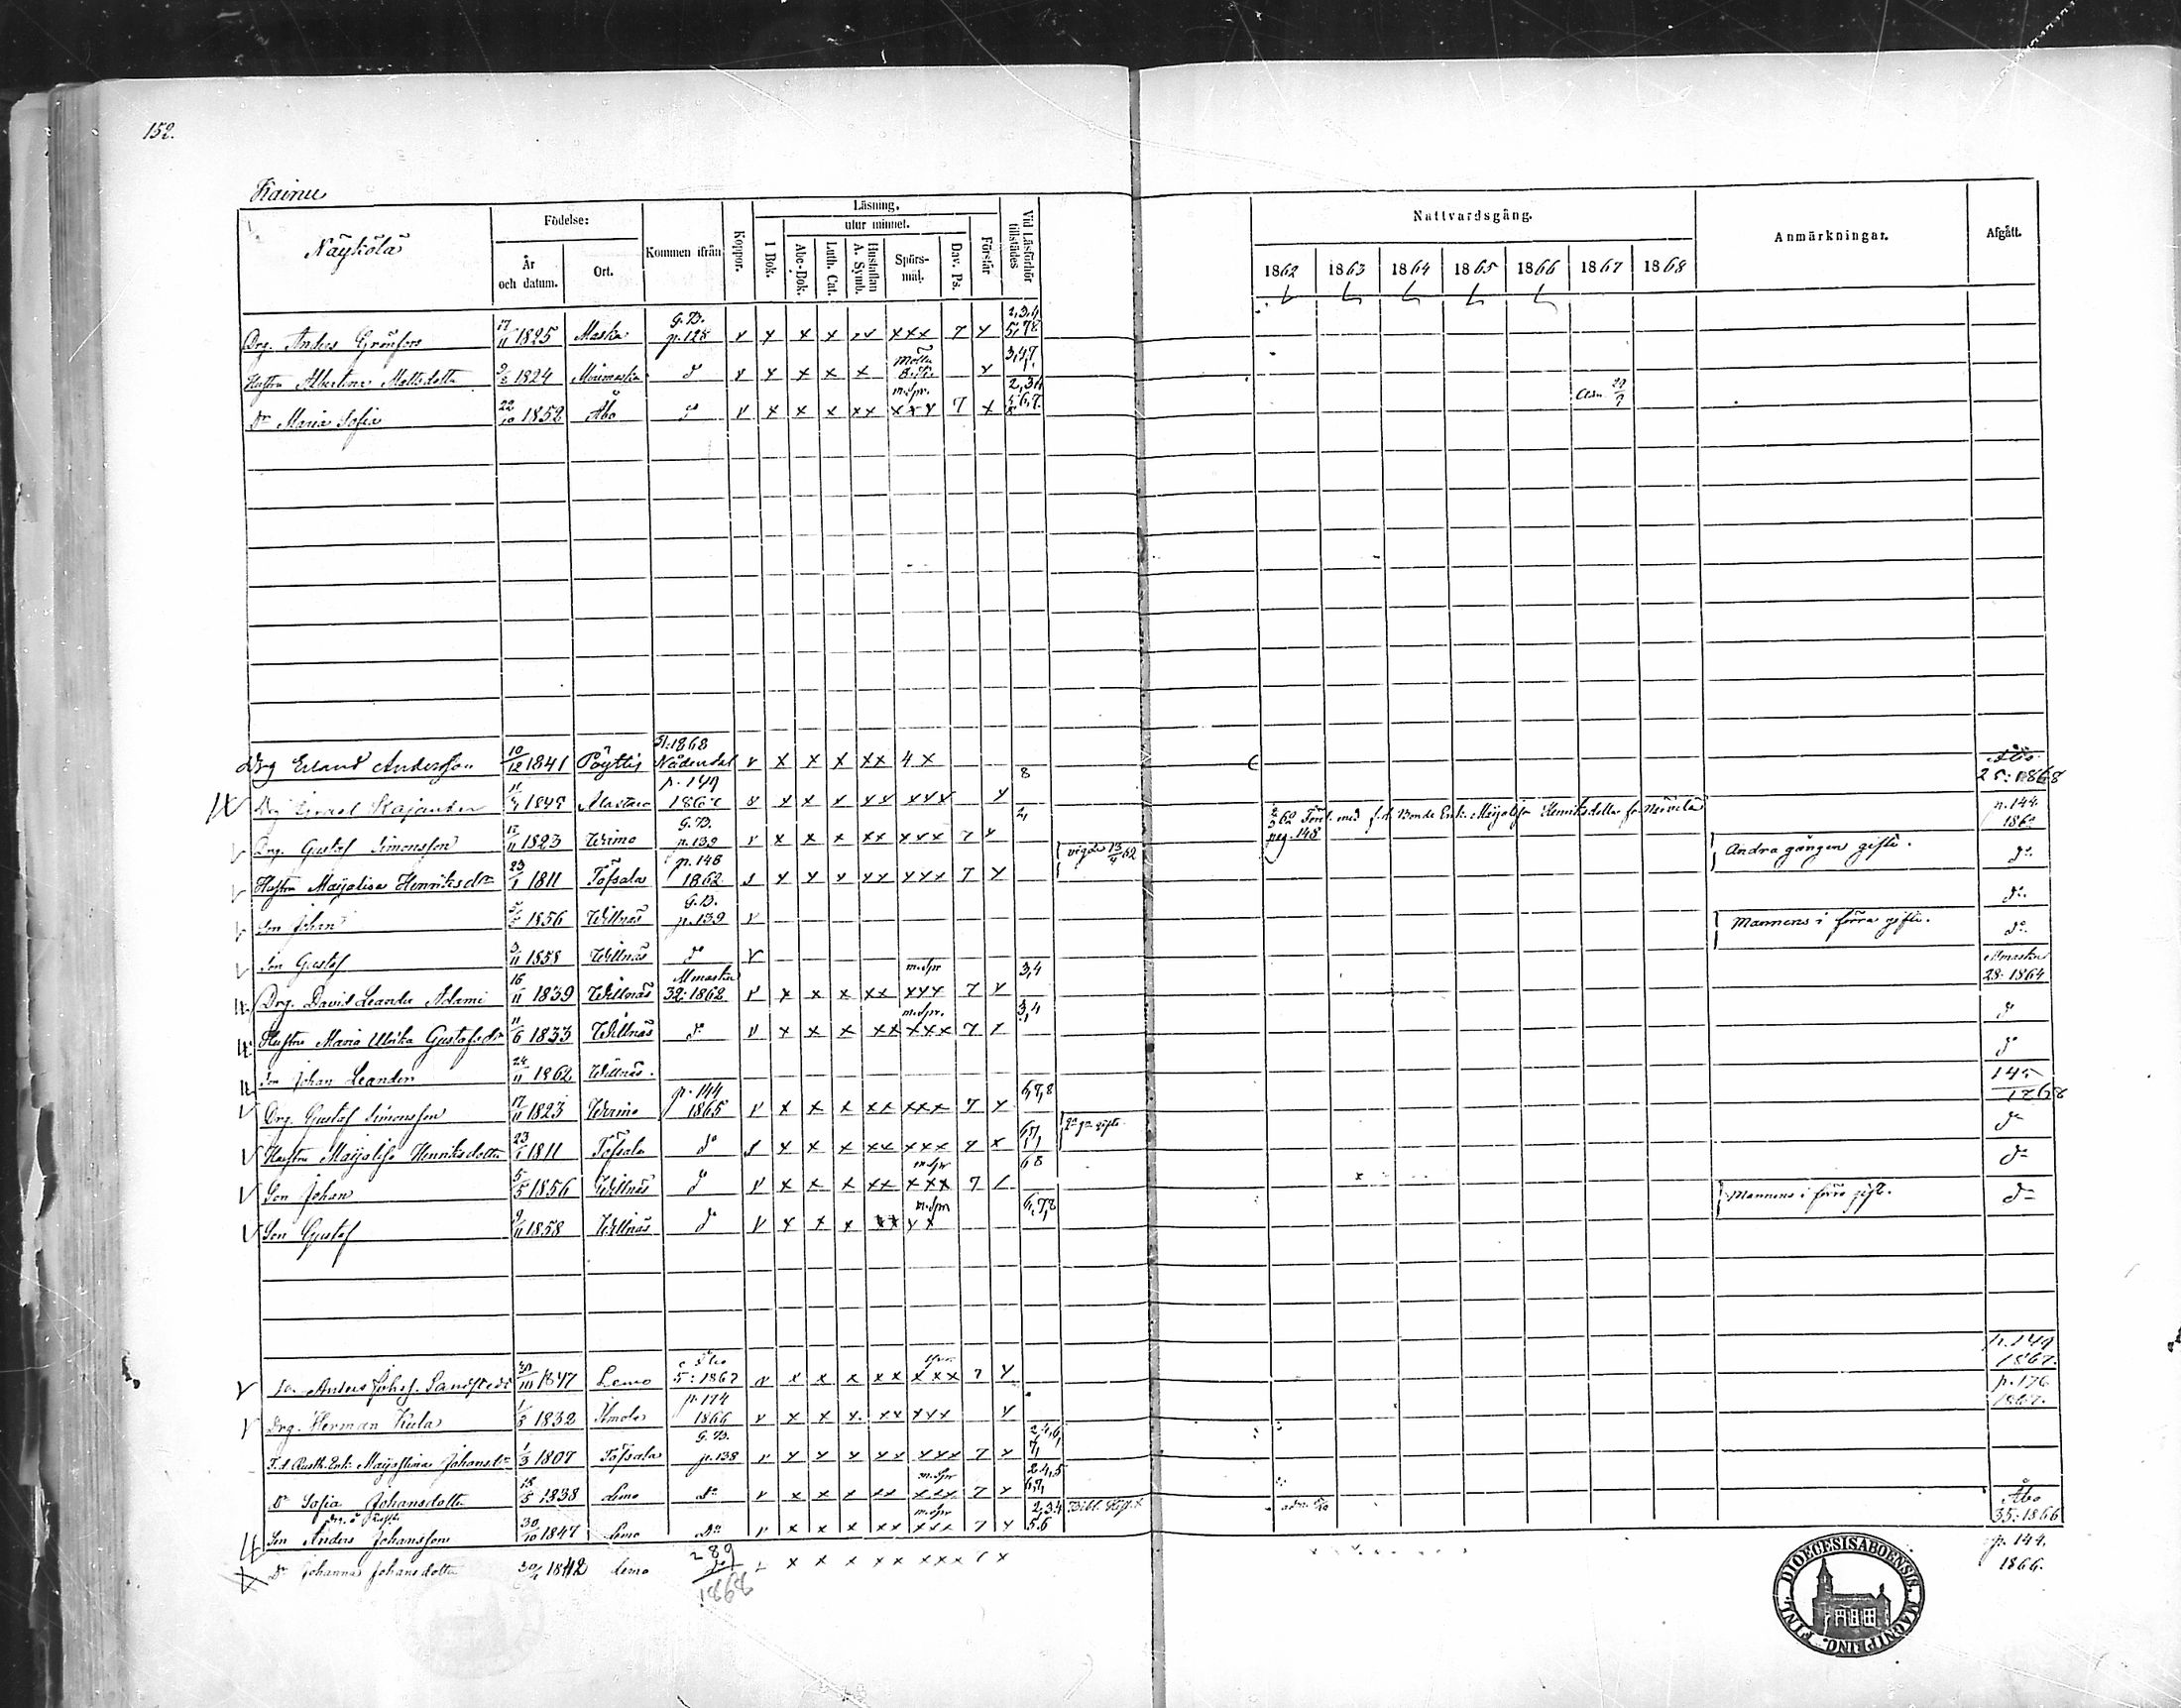 152.
Kainu
Näykölä
Födelse:
År och datum.
Ort.
Kommen ifrån
Koppor.
Läsning.
I Bok.
utur minnet.
Abc-Bok.
Luth. Cat.
Hustaflan A. Symb.
Spörs-mål.
Dav. Ps.
Förstår
Vid Läsförhör tillstädes
Nattvardsgång.
1862 1863 1864 1865 1866 1867 1868
Anmärkningar.
Afgått.
Drg. Anders Grönfors 17/11 1825 Masku G.B. p.128 v x x x xx xxx 7 x 2,3,4 5,7,8
Hustru Albertina Mattsdotter 1824 d° v x x x x x 3,4,7
Dr Maria Sofia 22/10 1852 Åbo d° v x x x xx m.spr. xxx 7 x 2,3,4 5,6,7. 8
Drg Erland Andersson 10/12 1841 Pöyttis 51.1868 Nådendal v x x x xx 4 x Åbo 25:1868
Drg 1848 Alastaro p. 149 v x x x xx xxx x 8 p. 144
Drg. Gustaf Simonsson 17/11 1823 Wirmo G.B. p.139 v x x x xx xxx 7 x 2, 62 Förl. med f.d. Bonde Enk. Maijalisa Henriksdotter fr. pag. 148
Hustru Maijalisa Henriksdr 23/1 1811 Töfsala p. 148 1862 v x x x xx xxx 7 x vigde 13/4 62 Andra gången gifte. d°.
Son Johan 5/5 1856 Willnäs G.B. p.139 v d°.
Son Gustaf 9/11 1858 Willnäs d° v Mannens i förra gifte. d°.
Drg. David Leander Adami 16/11 1839 Willnäs Mmasku 32:1862 v x x x xx m.spr xxx 7 x 3,4 Mmasku 28:1864
Hustru Maria Ulrika Gustafsdr 11/6 1833 Willnäs d° v x x x xx m.spr. xxx 7 x 3,4 d°
Son Johan Leander 24/11 1862 Willnäs. d°
Drg. Gustaf Simonsson 17/11 1823 Wirmo p. 144 1865 v x x x xx xxx 7 x 6,7,8 145 1868
Hustru Maijalisa Henriksdotter 23/1 1811 Töfsala d° v x x x xx xxx 7 x 6,7, 2a ga gifte d°
Son Johan 5/5 1856 Willnäs d° v x x x xx m.spr xxx 7 6 8 d°
Son Gustaf 9/11 1858 Willnäs d° v x x x xx m.spr x x 6,7,8 Mannens i förra gifte. d°
Anders Johss. Sandstedt 1847 Lemo Åbo 5:1867 v x x x xx spr. xxx 7 x p.149 1867.
Drg. Herman Kula 1832 p.174 1866 v x x x xx xxx x p.176 1867.
F.d. Rusth. Enk. Maijastina Johansdr 1/3 1807 Töfsala G.B. p.138 v x x x xx xxx 7 x 2,4,6, 7,
Dr Sofia Johansdotter 18/5 1838 Lemo d° v x x x xx m.spr xxx 7 x 2,4,5 6,7,
Son Anders Johansson 30/10 1847 Lemo d° v x x x xx m.spr xxx 7 x 2,3,4 5,6 Åbo 35:1866
Dr Johanna Johansdotter 1842 Lemo 289 1868 x x x xx xxx x p. 144. 1866.
DIOECESIS ABOENSIS. MAGNI PRINC. FINL.